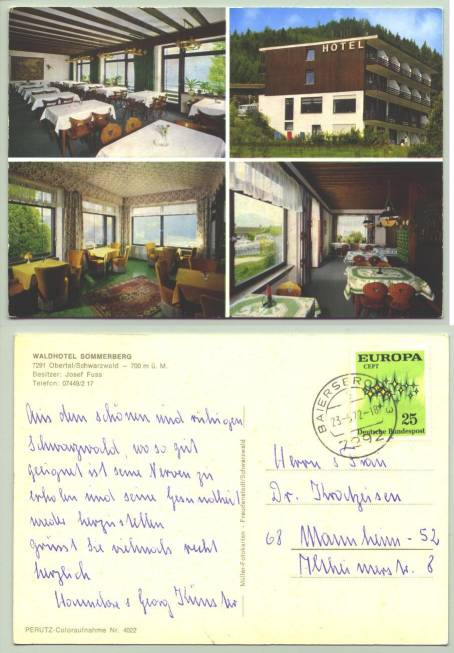 HOTEL
WALDHOTEL SOMMERBERG
7291 Obertal/Schwarzwald – 700 m ü. M.
Besitzer: Josef Fuss
Telefon: 07449/2 17
Aus dem schönen und ruhigen
Schwarzwald, wo so gut
geeignet ist seine Nerven zu
erholen und seine Gesundheit
wieder herzustellen
grüsst Sie vielmals recht
herzlich
Hannelore & Georg
Müller-Fotokarten - Freudenstadt/Schwarzwald
PERUTZ-Coloraufnahme Nr. 4022
EUROPA
CEPT
25
Deutsche Bundespost
23-5.72-18
7292
Herrn & Frau
Dr.
68 Mannheim - 52
8